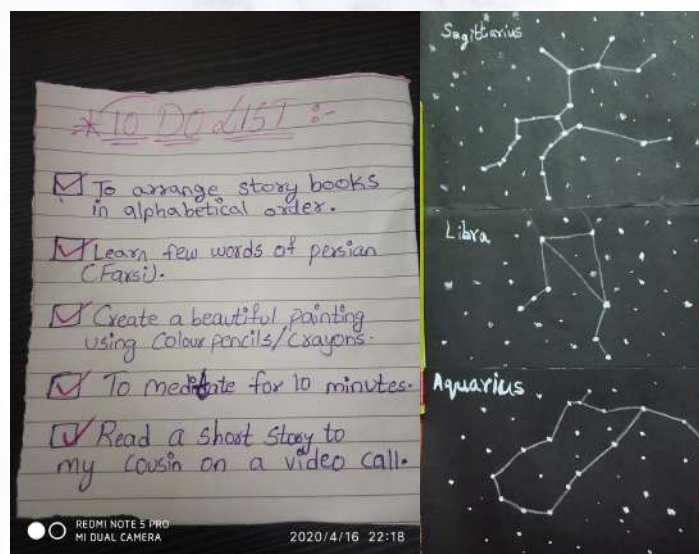 * TO DO LIST :-
To arrange story books
in alphabetical order.
Learn few words of persian
(Farsi).
Create a beautiful painting
using Colour pencils/Crayons.
To meditate for 10 minutes.
Read a short story to
my cousin on a video call.
REDMI NOTE 5 PRO
MI DUAL CAMERA
2020/4/16 22:18
Sagittarius
Libra
Aquarius